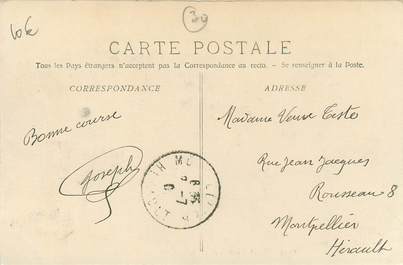 10€
30
CARTE POSTALE
Tous les Pays étrangers n'acceptent pas la Correspondance au recto. - Se renseigner à la Poste.
CORRESPONDANCE
ADRESSE
Bonne course
Joseph
Madame Veuve Teste
Rue Jean Jacques
Rousseau 8
Montpellier
Hérault